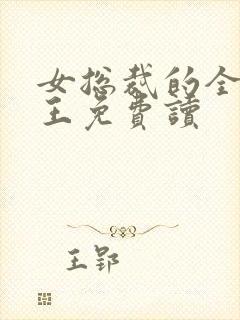 女总裁的全
王免費讀
王郢